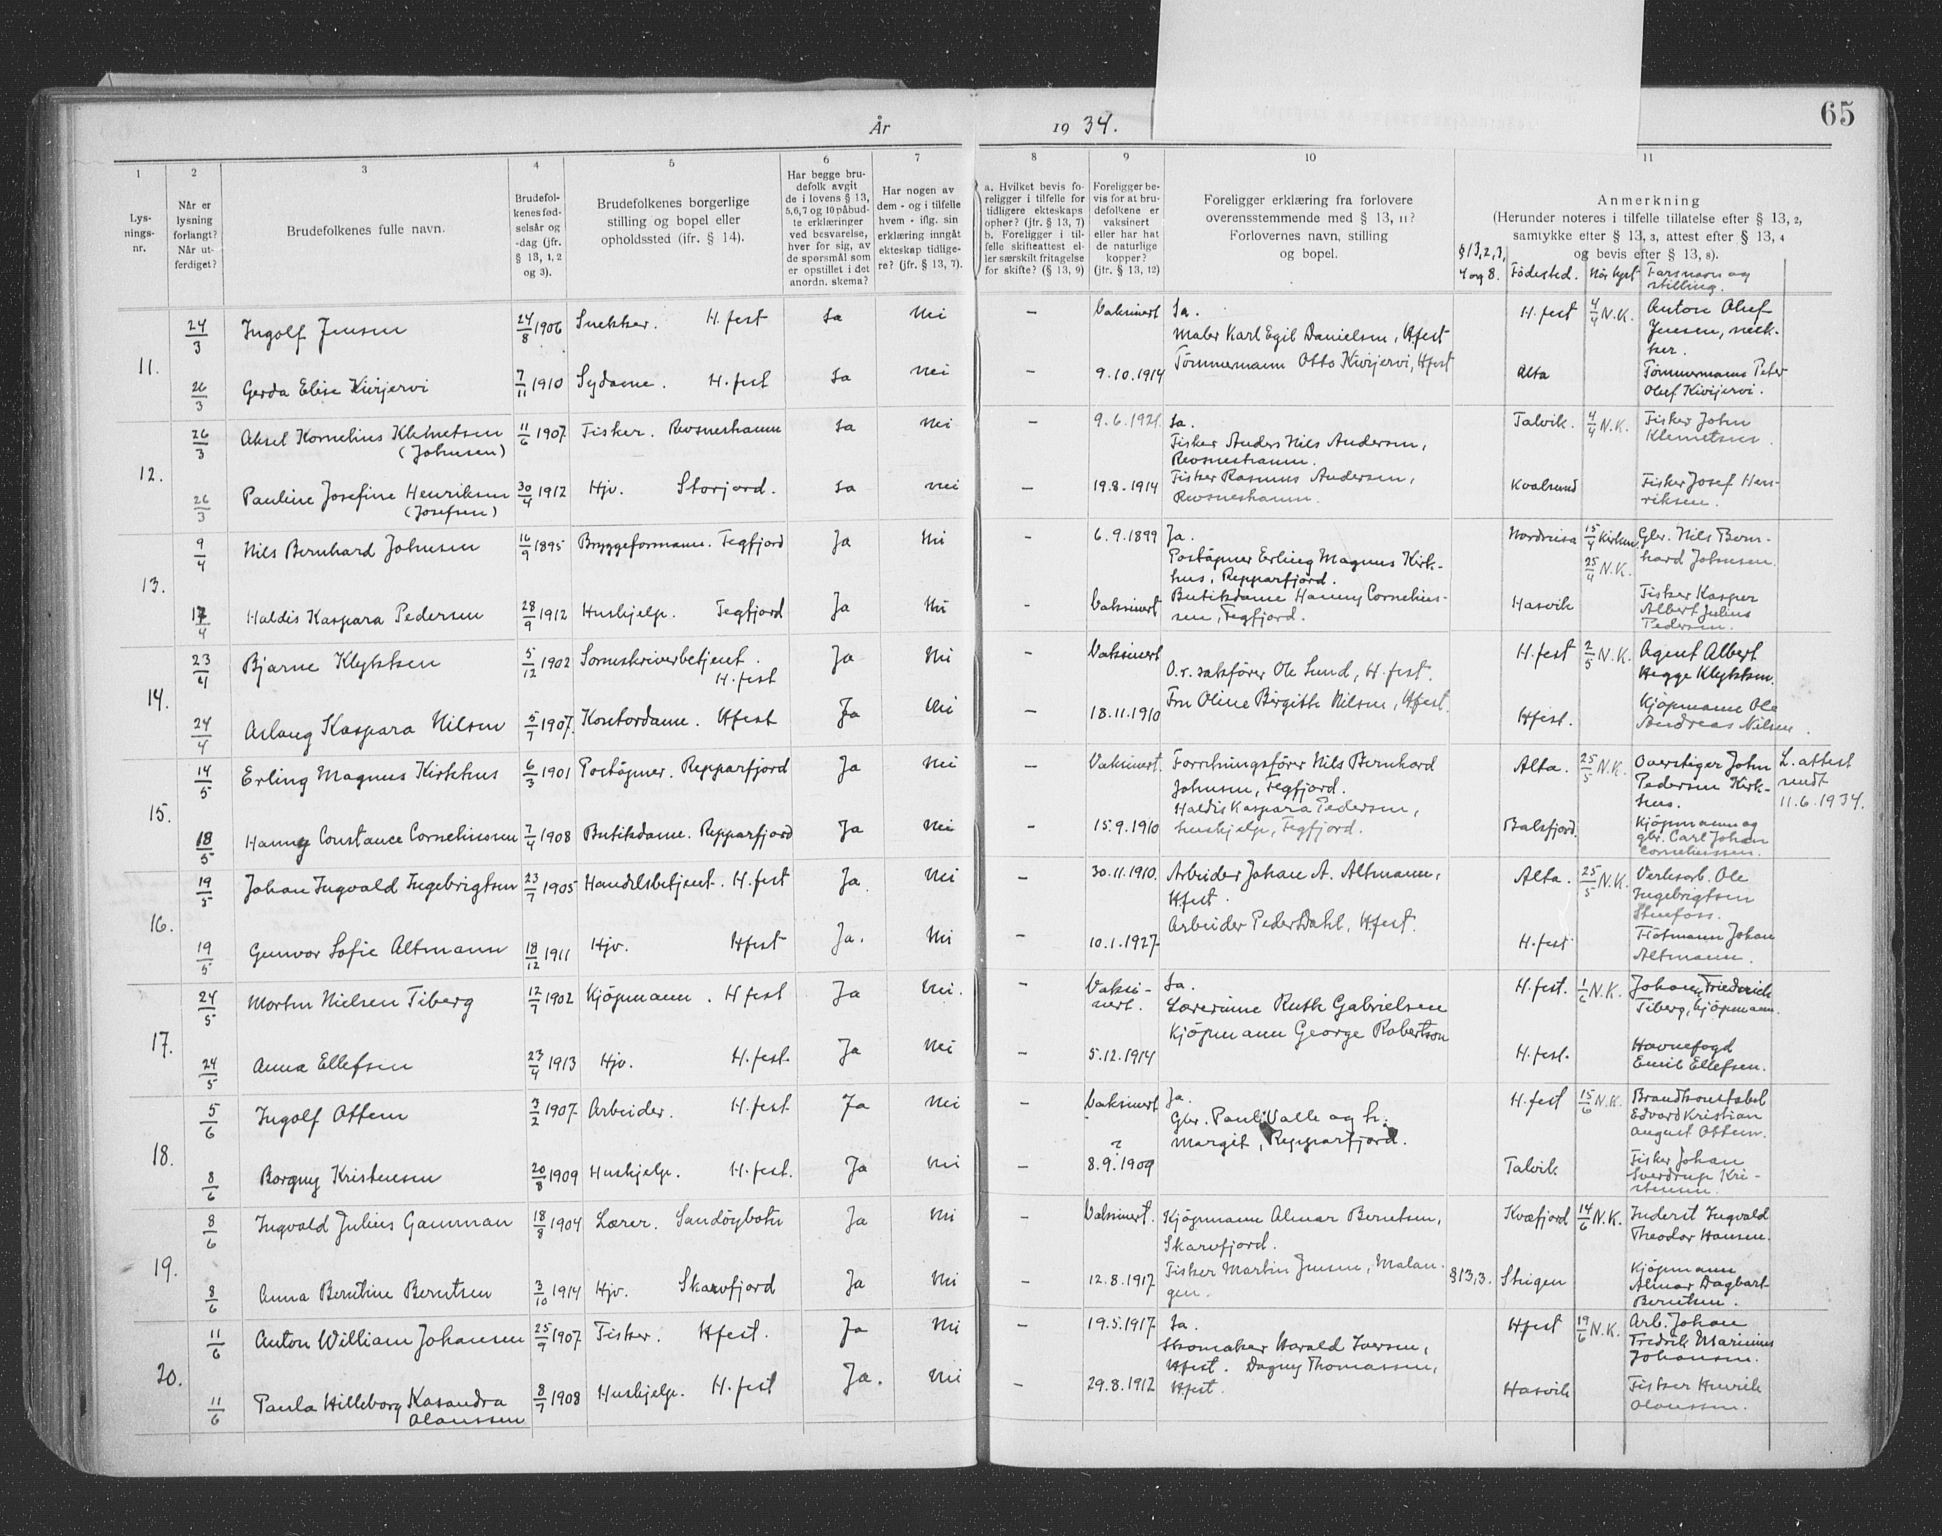 65
År 1934.
1
2
3
4
5
6
7
8
9
10
11
Lys-
nings-
nr.
Når er
lysning
forlangt?
Når ut-
ferdiget?
Brudefolkenes fulle navn.
Brudefol-
kenes fød-
selsår og
-dag (jfr.
§ 13, 1, 2
og 3).
Brudefolkenes borgerlige
stilling og bopel eller
opholdssted (ifr. § 14).
Har begge bru-
defolk avgit
de i lovens § 13,
5,6,7 og 10 påbud-
te erklæringer
ved besvarelse,
hver for sig, av
de spørsmål som
er opstillet i det
anordn. skema?
Har nogen av
dem - og i tilfelle
hvem - iflg. sin
erklæring inngått
ekteskap tidlige-
re? (jfr. § 13, 7).
a. Hvilket bevis fo-
religger i tilfelle for
tidligere ekteskaps
ophør? (jfr. § 13, 7)
b. Foreligger i til-
felle skifteattest el-
ler særskilt fritagelse
for skifte? (§ 13, 9)
Foreligger be-
vis for at bru-
defolkene er
vaksinert
eller har hat
de naturlige
kopper?
(jfr. § 13, 12)
Foreligger erklæring fra forlovere
overensstemmende med § 13, 11?
Forlovernes navn, stilling
og bopel.
Anmerkning
(Herunder noteres i tilfelle tillatelse efter § 13, 2,
samtykke efter § 13, 3, attest efter § 13, 4
og bevis efter § 13, 8).
§ 13, 2, 3,
4 og 8. Fødested. Når lyst Farsnavn og
stilling.
11.
24/3 Ingolf Jensen 24/8 1906 Snekker. H.fest Ja Nei – Vaksinert Ja. H.fest 4/4 N.K. Anton Oluf
Maler Karl Egil Danielsen, Hfest Jensen, snek-
ker.
26/3 Gerda Elise Kivijervi 7/11 1910 Sydame. H.fest Ja Nei – 9.10.1914 Tömmermann Otto Kivijervi, Hfest Alta Tömmermann Peter
Oluf Kivijervi.
12.
26/3 Aksel Kornelius Klemetsen 11/6 1907 Fisker. Revsneshamn Ja Nei – 9.6.1921. Ja. Talvik. 4/4 N.K. Fisker John
(Johnsen) Fisker Anders Nils Andersen, Klemetsen.
Revsneshamn.
26/3 Pauline Josefine Henriksen 30/4 1912 Hjv. Storjord. Ja Nei – 19.8.1914 Fisker Rasmus Andersen, Kvalsund Fisker Josef Hen-
(Josefsen) Revsneshamn. riksen.
13.
9/4 Nils Bernhard Johnsen 16/9 1895 Bryggeformann. Fegfjord Ja Nei – 6.9.1899 Ja. Nordreisa 15/4 Kirken. Gbr. Nils Bern-
Poståpner Erling Magnus Kirk- 25/4 N.K. hard Johnsen.
hus, Repparfjord.
17/4 Haldis Kaspara Pedersen 28/9 1912 Hushjelp. Fegfjord Ja Nei – Vaksinert Butikdame Hanny Cornelius- Hasvik Fisker Kasper
sen, Fegfjord. Albert Julius
Pedersen.
14.
23/4 Bjarne Klykken 5/12 1902 Sorenskriverbetjent. Ja Nei – Vaksinert H.fest 2/5 N.K. Agent Albert
H.fest O.r. sakfører Ole Lund, H.fest. Hegge Klykken.
24/4 Aslaug Kaspara Nilsen 5/7 1907. Kontordame. Hfest Ja Nei – 18.11.1910 Fru Oline Birgithe Nilsen, Hfest. Hfest. Kjöpmann Ole
Andreas Nilsen.
15.
14/5 Erling Magnus Kirkhus 6/3 1901 Poståpner. Repparfjord Ja Nei – Vaksinert. Forretningsfører Nils Bernhard Alta. 25/5 N.K. Overstiger John L. attest
Johnsen, Fegfjord. Pedersen Kirk- sendt
hus. 11.6.1934.
18/5 Hanny Constance Corneliussen 7/4 1908 Butikdame. Repparfjord Ja Nei – 15.9.1910 Haldis Kaspara Pedersen, Balsfjord. Kjöpmann og
hushjelp, Fegfjord. gbr. Carl Johan
Corneliussen.
16.
19/5 Johan Ingvald Ingebrigtsen 23/7 1905 Handelsbetjent. H.fest Ja. Nei – 30.11.1910. Arbeider Johan A. Altmann, Alta. 25/5 N.K. Verksarb. Ole
Hfest. Ingebrigtsen
19/5 Gunvor Sofie Altmann 18/12 1911 Hjv. Hfest Ja. Nei – 10.1.1927 Arbeider Peder Dahl, Hfest. H.fest Flötmann Johan
Altmann.
17.
24/5 Morten Nielsen Tiberg 12/7 1902 Kjöpmann. H fest Ja Nei. – Vaksi- Ja. H.fest. 1/6 N.K. Johan Friederich
nert. Lærerinne Ruth Gabrielsen Tiberg, kjöpmann.
24/5 Anna Ellefsen 23/4 1913 Hjv. H.fest. Ja Nei – 5.12.1914 Kjöpmann George Robertson H.fest. Havnefogd
Emil Ellefsen.
18.
5/6 Ingolf Ottem 3/2 1907. Arbeider. H.fest Ja Nei – Vaksinert Ja. H.fest 15/6 N.K. Brandkonstabel
Gbr. Paul Valle og h. Edvard Kristian
Margit, Repparfjord. August Ottem.
8/6 Borgny Kristensen 20/8 1909 Hushjelp. H.fest. Ja Nei – ? 8.9.1909 Talvik Fisker Johan
Sverdrup Kri-
stensen.
19.
8/6 Ingvald Julius Gamman 18/8 1904 Lærer. Sandöybotn Ja Nei – Vaksinert. Kjöpmann Almar Berntsen, Kvæfjord 14/6 N.K. Inderst Ingvald
Skarvfjord. Theodor Hansen.
8/6 Anna Berntine Berntsen 3/10 1914 Hjv. Skarvfjord Ja Nei – 12.8.1917 Fisker Martin Jensen, Malan- § 13,3. Steigen Kjöpmann
gen. Almar Dagbart
Berntsen.
20.
11/6 Anton William Johansen 25/9 1907 Fisker. Hfest. Ja Nei – 19.5.1917 Ja. Hfest 19/6 N.K. Arb. Johan
Skomaker Harald Iversen, Fredrik Marinius
Hfest. Dagny Thomassen, Johansen.
11/6 Paula Hilleborg Kasandra 8/7 1908 Hushjelp. H.fest Ja. Nei – 29.8.1912 Hfest. Hasvik Fisker Henrik
Olaussen Olaussen.